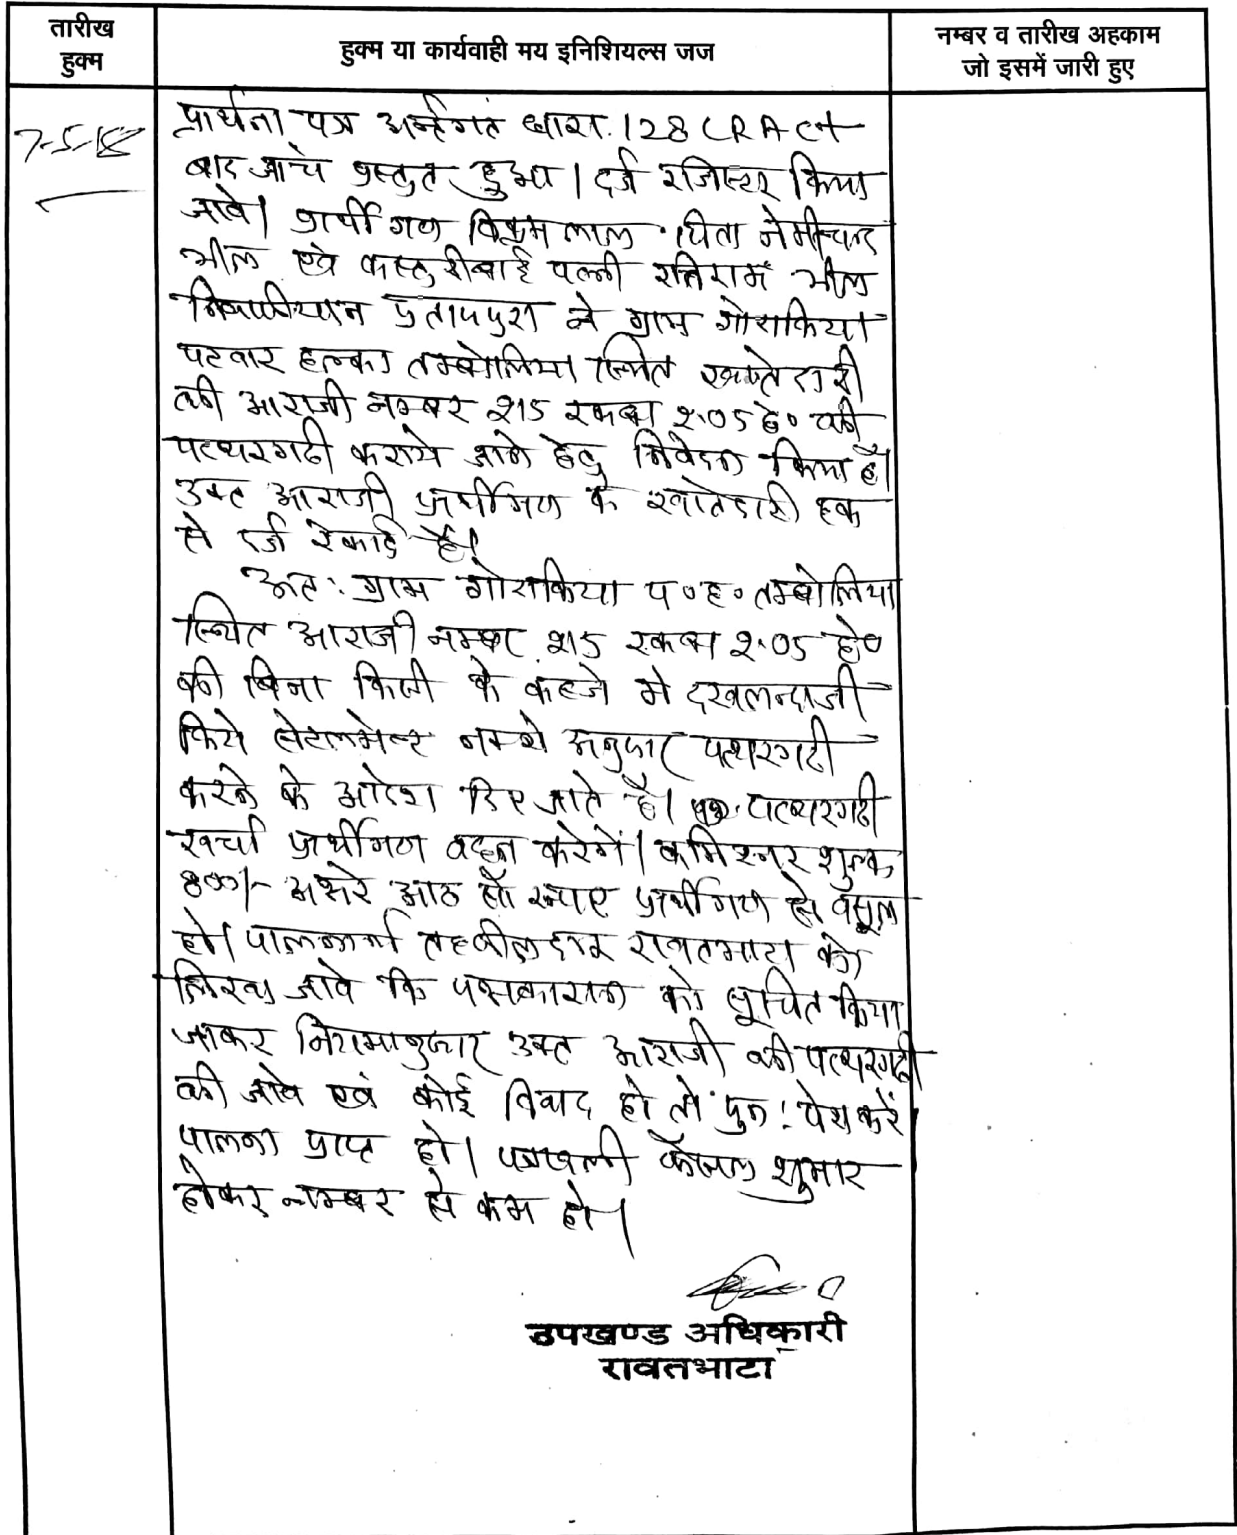 तारीख
हुक्म
हुक्म या कार्यवाही मय इनिशियल्स जज
नम्बर व तारीख अहकाम
जो इसमें जारी हुए
7-5-18
प्रार्थना पत्र अर्न्तगत धारा 128 LR Act
बाद जांच प्रस्तुत हुआ। दर्ज रजिस्टर किया
जावे। प्रार्थीगण लाल पिता नेमीचन्द
भील एवं कस्तुरीबाई पत्नी रतिराम भील
निवासीयान प्रतापपुरा ने ग्राम
पटवार हल्का तम्बोलिया स्थित खातेदारी
की आराजी नम्बर 215 रकबा 2.05 है० की
पत्थरगढी कराये जाने हेतु निवेदन किया है।
उक्त आराजी प्रार्थीगण के खातेदारी हक
से दर्ज रेकार्ड है।
अतः ग्राम प०ह० तम्बोलिया
स्थित आराजी नम्बर 215 रकबा 2.05 है०
की बिना किसी के कब्जे मे दखलन्दाजी
किये सेटलमेन्ट नक्शे अनुसार पत्थरगढी
करने के आदेश दिए जाते है। पत्थरगढी
खर्चा प्रार्थीगण वहन करेगें। कमिश्नर शुल्क
800/- अक्षरे आठ सौ रूपए प्रार्थीगण से वसूल
हो। पालनार्थ तहसीलदार रावतभाटा को
लिखा जावे कि पक्षकारान को सूचित किया
जाकर नियमानुसार उक्त आराजी की पत्थरगढी
की जावे एवं कोई विवाद हो तो पुनः पेश करें
पालना प्राप्त हो। पत्रावली फैसल शुमार
होकर नम्बर से कम हो।
उपखण्ड अधिकारी
रावतभाटा